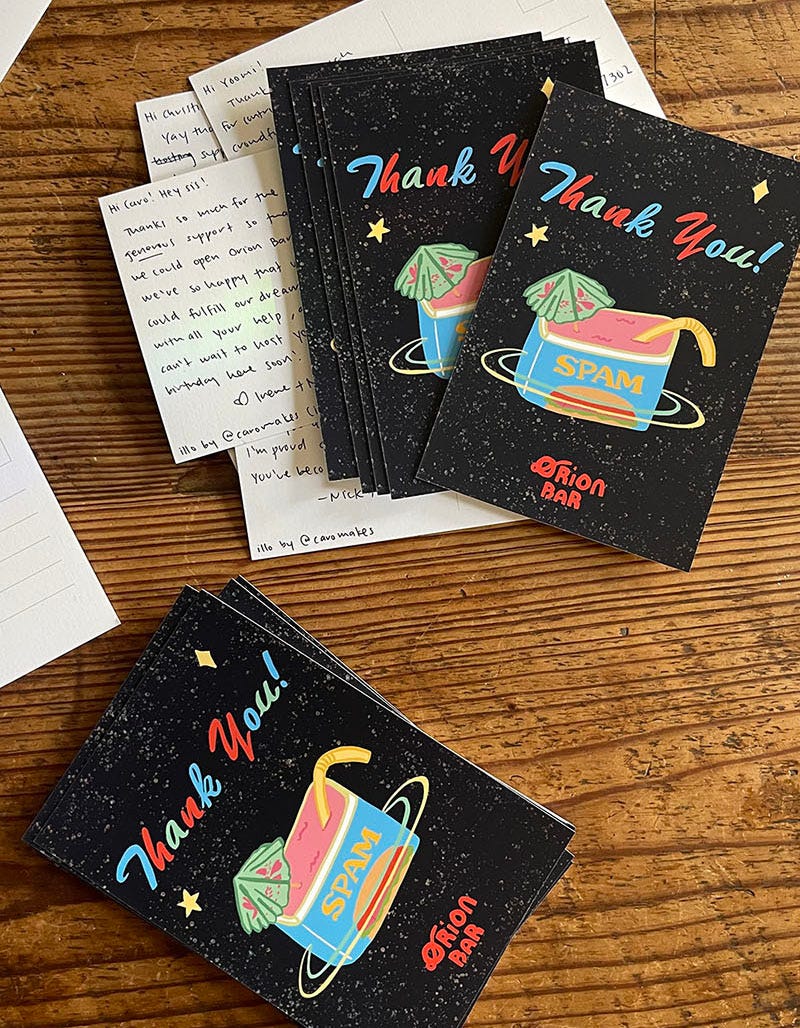 Hi Yoomi!
Thank
for
crowdf
1302
Hi
Yay
hosting
Hi Caro! Hey sis!
Thanks so much for the
generous support so tha
we could open Orion Bar
we've so happy that
could fulfill our dream
with all your help,
can't wait to host
birthday here soon!
♡ Irene +
illo by @caromakes
I'm proud
You've beco
-Nick
illo by @caromakes
Thank Y
S
Thank You!
SPAM
ORION
BAR
Thank You!
SPAM
ORION
BAR